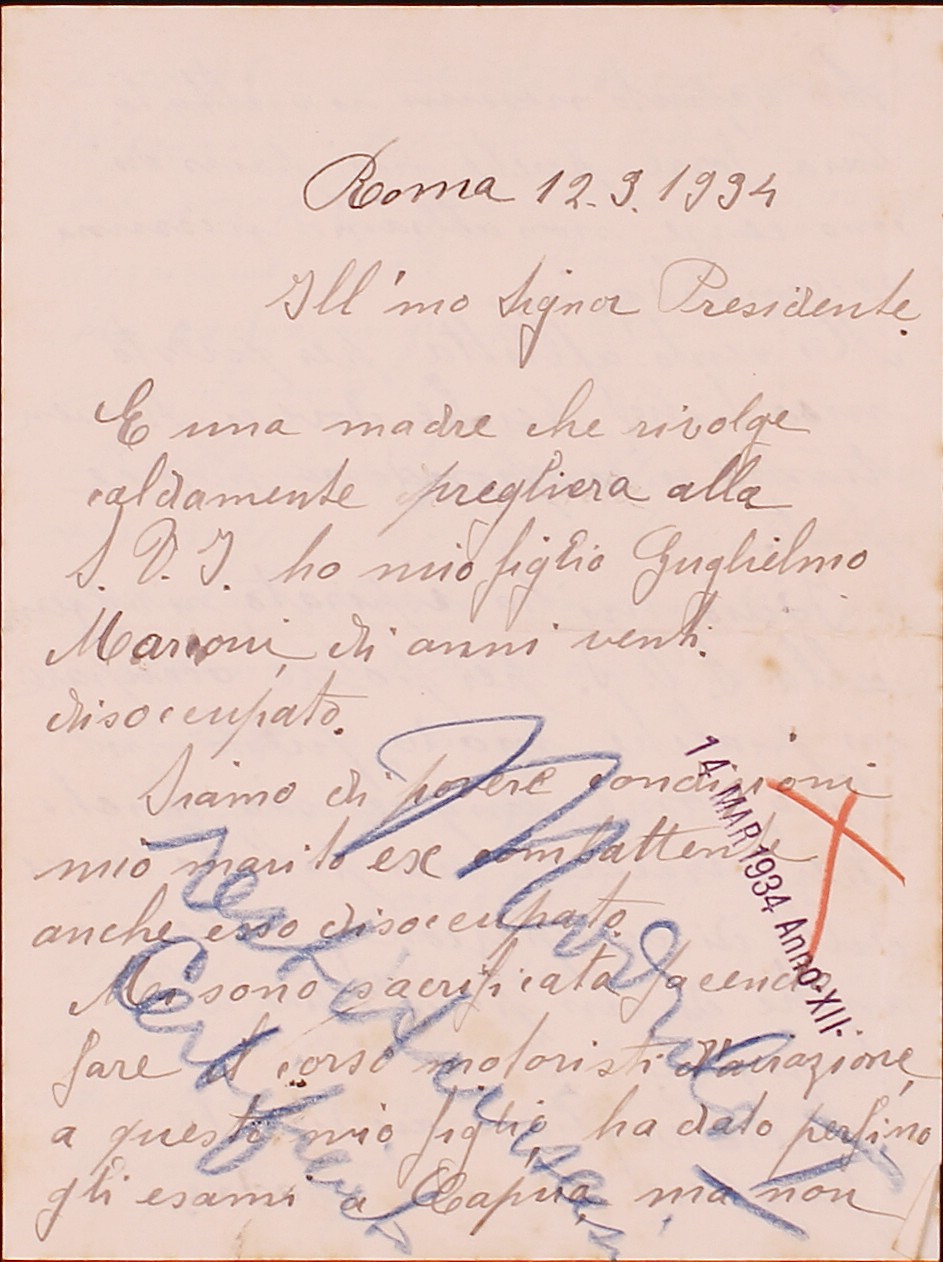 Roma 12.3.1934
Ill'mo Signor Presidente.
E una madre che rivolge
caldamente preghiera alla
S. V. I. ho mio figlio Guglielmo
di anni venti.
disoccupato.
Siamo di povere condizioni
mio marito ex combattente
anche esso disoccupato.
Mi sono sacrificata facendo
fare il corso motoristi d'aviazione,
a questo mio figlio, ha dato perfino
gli esami a Capua, ma non
14 MAR 1934 Anno XII-